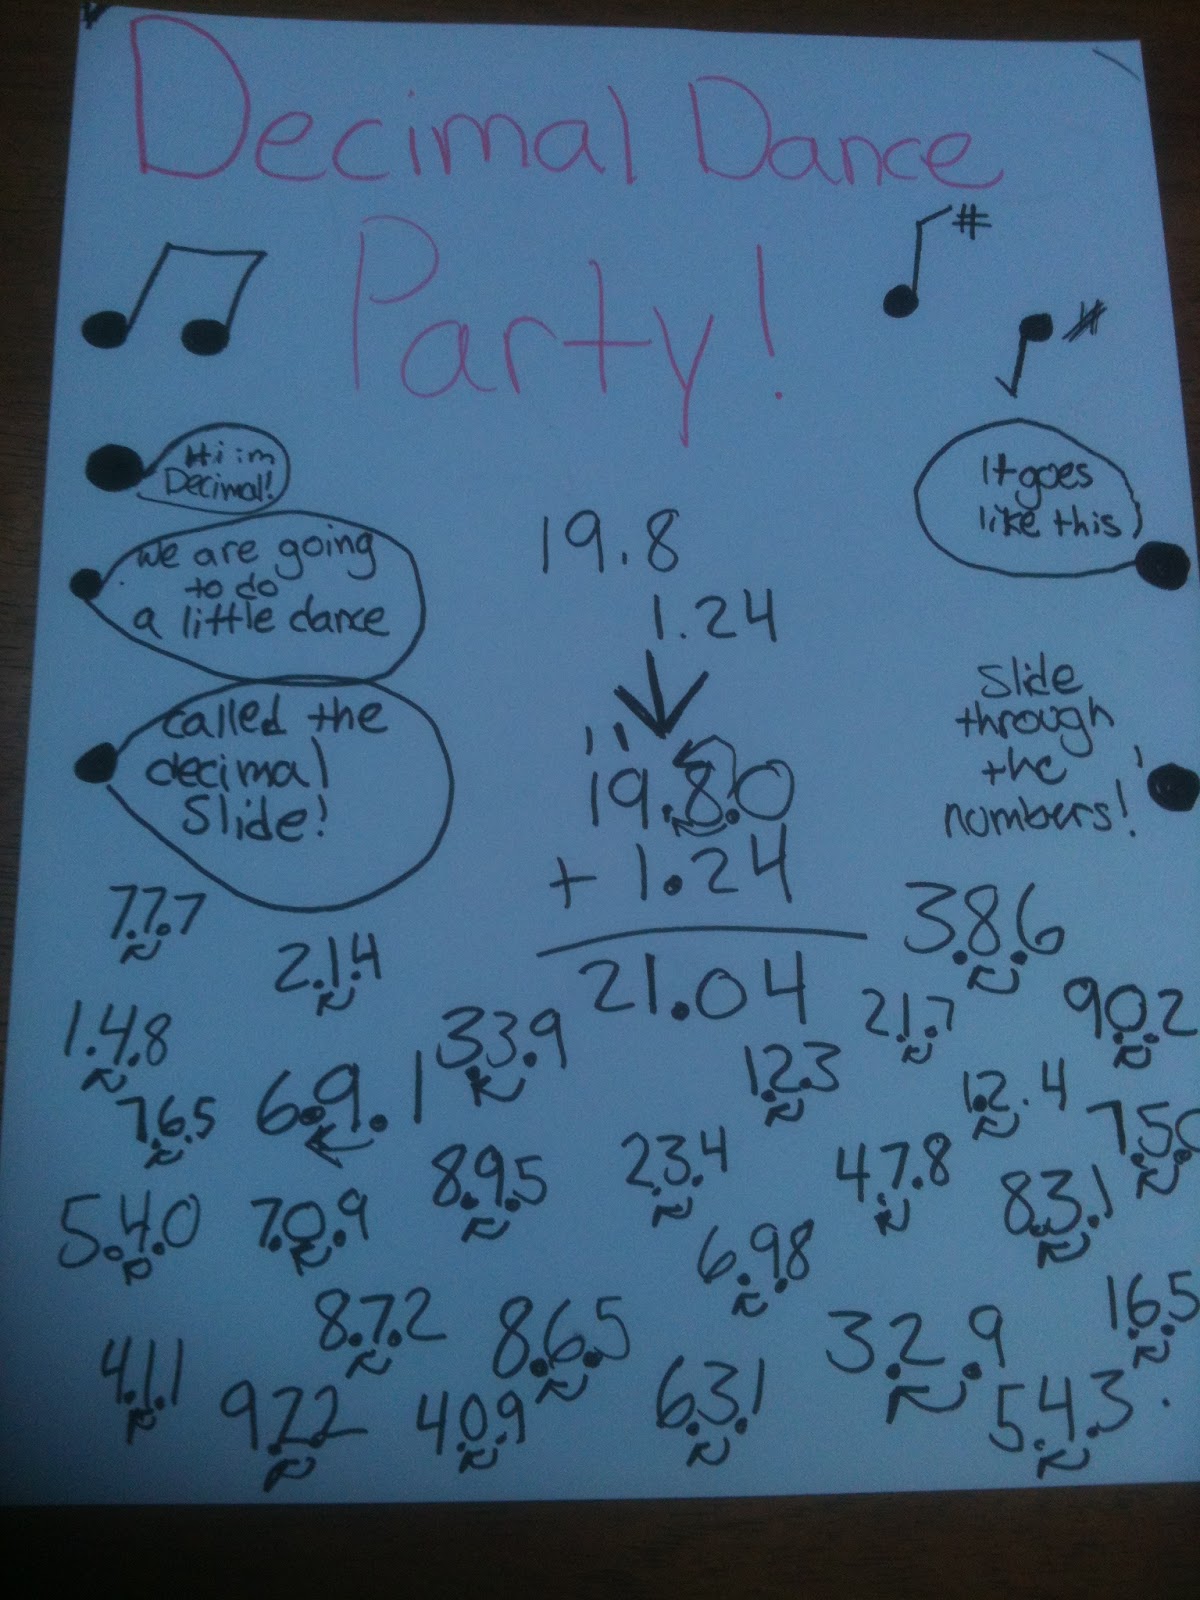 Decimal Dance
Party!
#
#
Hi im
Decimal!
we are going
to do
a little dance
called the
decimal
Slide!
It goes
like this
Slide
through
the
numbers!
19.8
1.24
11
19.8.0
+ 1.24
21.04
7.7.7
2.1.4
3.8.6
1.4.8
3.3.9
2.1.7
9.0.2
7.6.5
6.9.1
1.2.3
1.2.4
7.5.0
5.4.0
7.0.9
8.9.5
2.3.4
4.7.8
8.3.1
6.9.8
8.7.2
8.6.5
3.2.9
1.6.5
4.1.1
9.2.2
4.0.9
6.3.1
5.4.3.